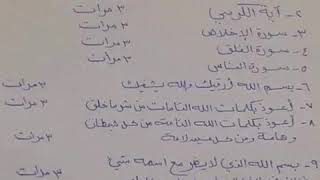 ٢- آية الكرسي ٣ مرات
٣- سورة الإخلاص ٣ مرات
٤- سورة الفلق ٣ مرات
٥- سورة الناس ٣ مرات
٦- بسم الله أرقيك والله يشفيك ٣ مرات
٧- أعوذ بكلمات الله التامات من شر ما خلق ٣ مرات
٨- أعوذ بكلمات الله التامة من كل شيطان
وهامة ومن كل عين لامة ٣ مرات
٩- بسم الله الذي لا يضر مع اسمه شيء ٣ مرات